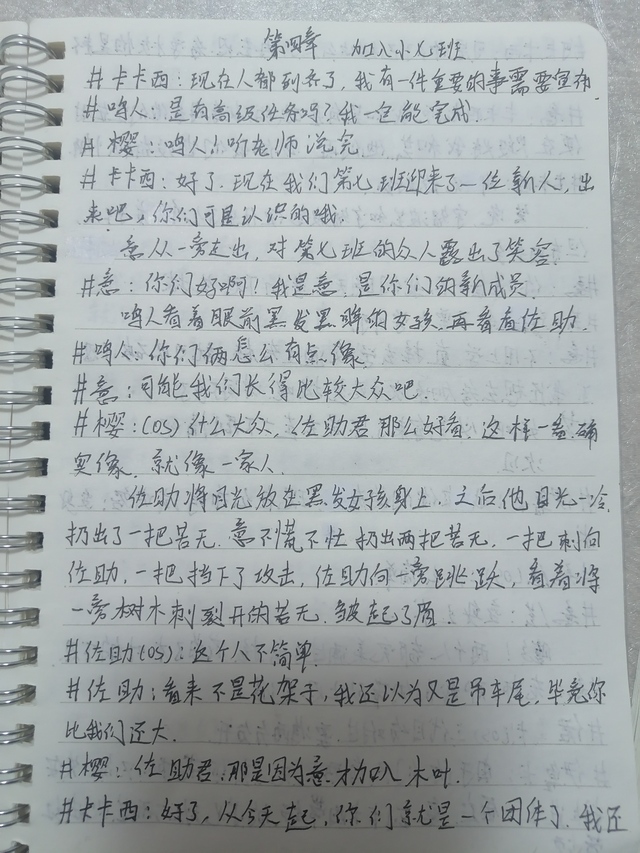 第四章 加入小七班
#卡卡西:现在人都到齐了,我有一件重要的事需要宣布
#鸣人:是有高级任务吗?我一定能完成.
#樱:鸣人!听老师说完.
#卡卡西:好了.现在我们第七班迎来了一位新人,出
来吧,你们可是认识的哦.
意从一旁走出,对第七班的众人露出了笑容.
#意:你们好啊!我是意.是你们的新成员.
鸣人看着眼前黑发黑眸的女孩.再看看佐助.
#鸣人:你们俩怎么有点像.
#意:可能我们长得比较大众吧.
#樱:(OS)什么大众,佐助君那么好看,这样一看.确
实像.就像一家人.
佐助将目光放在黑发女孩身上.之后他目光一冷,
扔出了一把苦无.意不慌不忙扔出两把苦无,一把刺向
佐助,一把挡下了攻击,佐助向一旁跳跃,看着将
一旁树木刺裂开的苦无.皱起了眉.
#佐助(OS):这个人不简单.
#佐助:看来不是花架子,我还以为又是吊车尾,毕竟你
比我们还大.
#樱:佐助君.那是因为意才加入木叶.
#卡卡西:好了,从今天起,你们就是一个团体了.我还